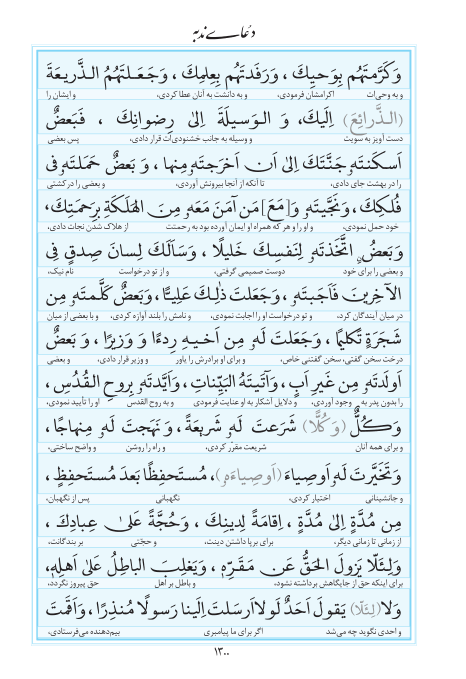 دُعای ندبه
وَكَرَّمتَهُم بِوَحيِكَ ، وَرَفَدتَهُم بِعِلمِكَ ، وَجَعَلتَهُمُ الذَّريعَةَ
و به وحی‌ات اکرامشان فرمودی، و به دانشت به آنان عطا کردی، و ایشان را
(الذَّرائِعَ) اِلَيكَ، وَ الوَسيلَةَ اِلىٰ رِضوانِكَ ، فَبَعضٌ
دست آویز به سویت و وسیله به جانب خشنودی‌ات قرار دادی، پس بعضی
اَسكَنتَهو جَنَّتَكَ اِلىٰ اَن اَخرَجتَهو مِنها ، وَ بَعضٌ حَمَلتَهو فى
را در بهشت جای دادی، تا آنکه از آنجا بیرونش آوردی، و بعضی را در کشتی
فُلكِكَ، وَنَجَّيتَهو وَ[مَعَ] مَن آمَنَ مَعَهو مِنَ الهَلَكَةِ بِرَحمَتِكَ،
خود حمل نمودی، و او را و هر که همراه او ایمان آورده بود به رحمتت از هلاک شدن نجات دادی،
وَبَعضُ ِۨ اتَّخَذتَهو لِنَفسِكَ خَليلًا ، وَسَأَلَكَ لِسانَ صِدقٍ فِى
و بعضی را برای خود دوست صمیمی گرفتی، و از تو درخواست نام نیک،
الآخِرينَ فَأَجَبتَهو ، وَجَعَلتَ ذٰلِكَ عَلِيًّا، وَبَعضٌ كَلَّمتَهو مِن
در میان آیندگان کرد، و تو درخواست او را اجابت نمودی، و نامش را بلند آوازه کردی، و با بعضی از میان
شَجَرَةٍ تَكليمًا ، وَجَعَلتَ لَهو مِن اَخيهِ رِدءًا وَ وَزيرًا ، وَ بَعضٌ
درخت سخن گفتی، سخن گفتنی خاص، و برای او برادرش را یاور و وزیر قرار دادی، و بعضی
اَولَدتَهو مِن غَيرِ اَبٍ ، وَآتَيتَهُ البَيِّناتِ ، وَاَيَّدتَهو بِروحِ القُدُسِ ،
را بدون پدر به وجود آوردی، و دلایل آشکار به او عنایت فرمودی و به روح القدس او را تأیید نمودی،
وَكُلٌّ (وَكُلًّا) شَرَعتَ لَهو شَريعَةً ، وَنَهَجتَ لَهو مِنهاجًا،
و برای همه آنان شریعت مقرّر کردی، و راه را روشن و واضح ساختی،
وَتَخَيَّرتَ لَهو اَوصِياءَ (اَوصِياءَهو)، مُستَحفِظًا بَعدَ مُستَحفِظٍ ،
و جانشینانی اختیار کردی، نگهبانی پس از نگهبان،
مِن مُدَّةٍ اِلىٰ مُدَّةٍ ، اِقامَةً لِدينِكَ ، وَحُجَّةً عَلىٰ عِبادِكَ ،
از زمانی تا زمانی دیگر، برای برپا داشتن دینت، و حجّتی بر بندگانت،
وَلِئَلّا يَزولَ الحَقُّ عَن مَقَرِّهى ، وَيَغلِبَ الباطِلُ عَلىٰ اَهلِهى،
برای اینکه حق از جایگاهش برداشته نشود، و باطل بر اهل حق پیروز نگردد،
وَلا(لِئَلّا) يَقولَ اَحَدٌ لَولا اَرسَلتَ اِلَينا رَسولًا مُنذِرًا ، وَاَقَمتَ
و احدی نگوید چه می‌شد اگر برای ما پیامبری بیم‌دهنده می‌فرستادی،
۱۳۰۰